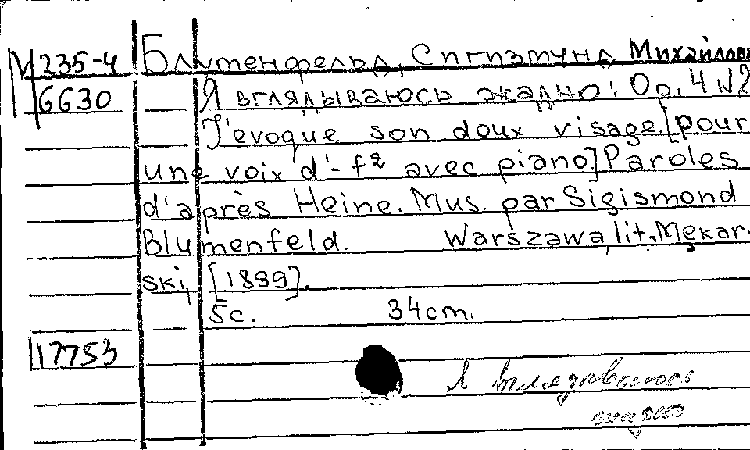 М 235-4 Блуменфельд, Сигизмунд Михайлович
6630 Я вглядываюсь жадно! Op. 4 №2
J'evoque son doux visage. [pour
une voix d'-fª avec piano] Paroles
d'après Heine. Mus. par Sigismond
Blumenfeld. Warszawa, lit. Mękar-
ski, [1899].
5c. 34cm.
17753
Я вглядываюсь
жадно